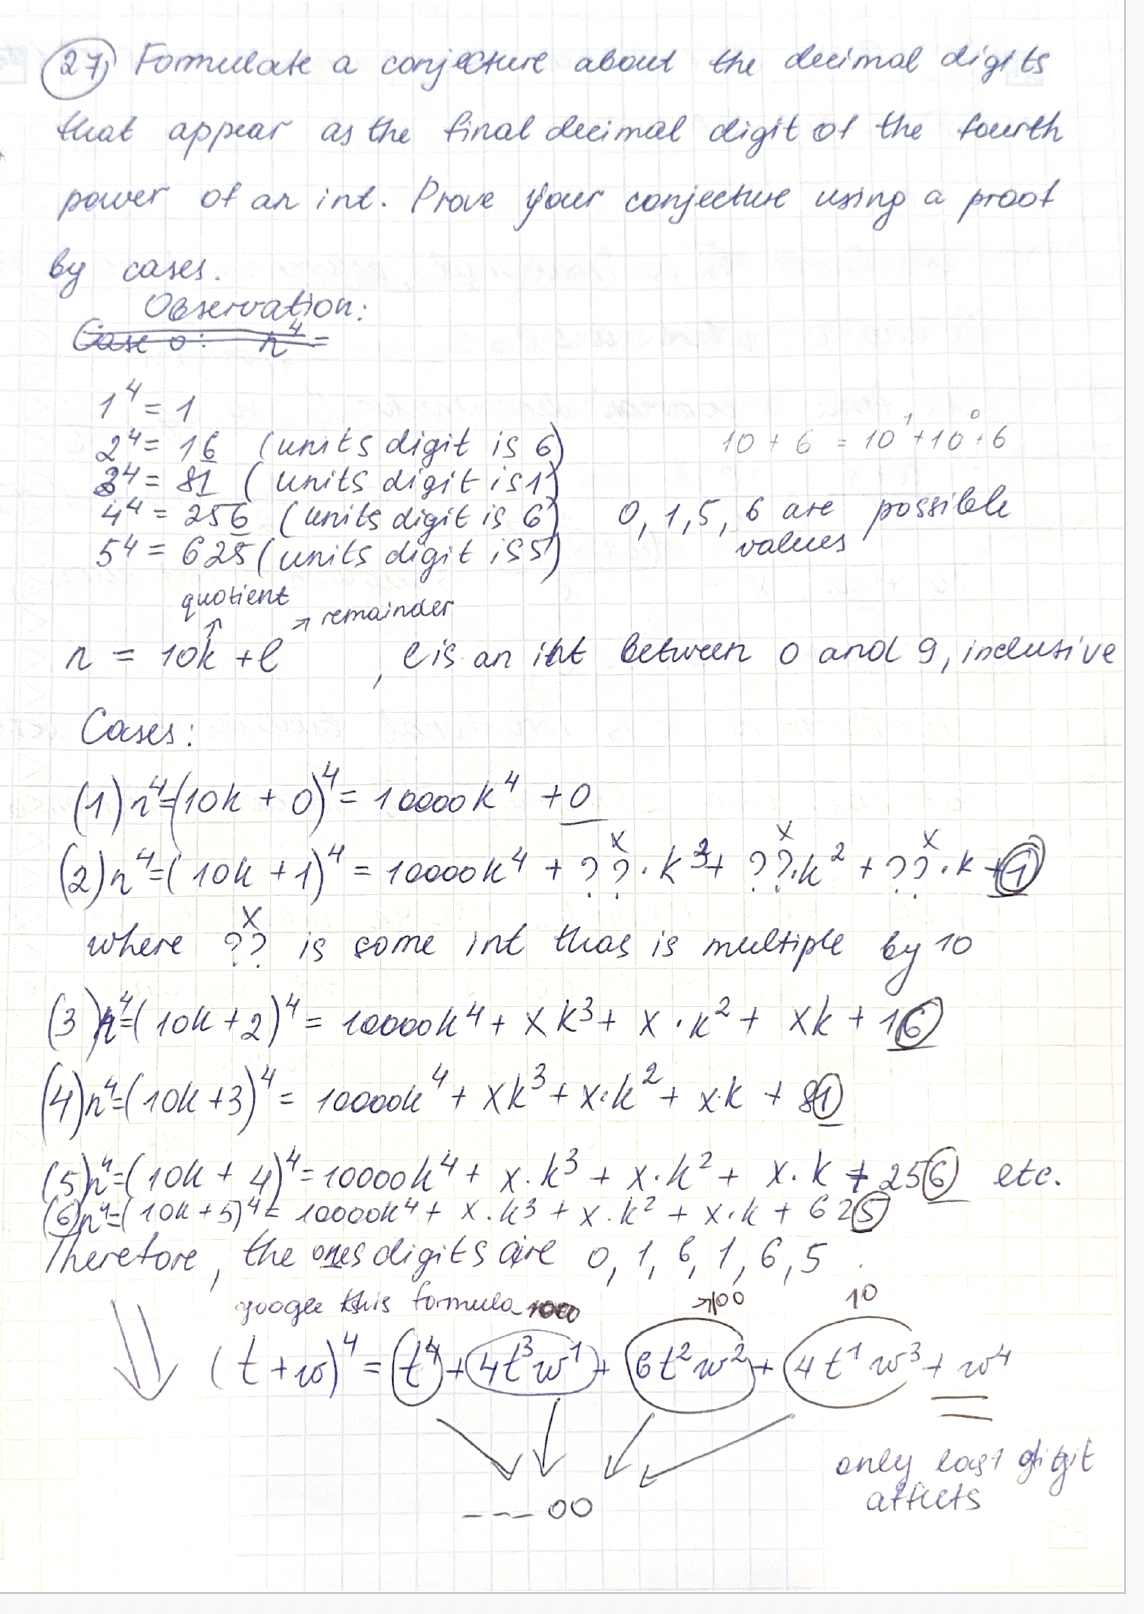 27) Formulate a conjecture about the decimal digits
that appear as the final decimal digit of the fourth
power of an int. Prove your conjecture using a proof
by cases.
Observation:
Case 0: n⁴ =
1⁴ = 1
2⁴ = 16 (units digit is 6) 10 + 6 = 10¹ + 10⁰ · 6
3⁴ = 81 (units digit is 1)
4⁴ = 256 (units digit is 6) 0, 1, 5, 6 are possible
values
5⁴ = 625 (units digit is 5)
quotient
→ remainder
n = 10k + l , l is an int between 0 and 9, inclusive
Cases:
(1) n⁴=(10k + 0)⁴ = 10000k⁴ + 0
x x x
(2) n⁴=(10k + 1)⁴ = 10000k⁴ + ?? · k³ + ??·k² + ??·k + 1
x
where ?? is some int thas is multiple by 10
(3) n⁴=(10k+2)⁴ = 10000k⁴ + xk³ + x·k² + xk + 16
(4) n⁴=(10k+3)⁴ = 10000k⁴ + xk³ + x·k² + x·k + 81
(5) n⁴=(10k + 4)⁴ = 10000k⁴ + x·k³ + x·k² + x·k + 256 etc.
(6) n⁴=(10k+5)⁴ = 10000k⁴ + x·k³ + x·k² + x·k + 625
Therefore, the ones digits are 0, 1, 6, 1, 6, 5.
google this formula 1000 →100 10
(t + w)⁴ = t⁴ + 4t³w¹ + 6t²w² + 4t¹w³ + w⁴
only last digit
affects
---00